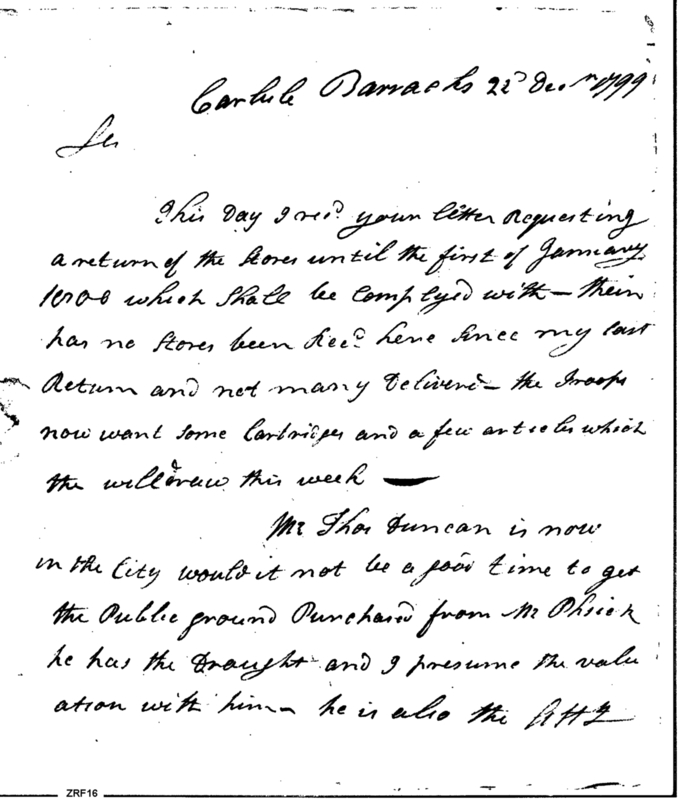 Carlisle Barracks 22d Decr 1799
Sir
This Day I recd your letter Requesting
a return of the Stores until the first of January
1800 which shall be Complyed with — their
has no Stores been Recd here Since my last
Return and not many Deliverd — the Troops
now want Some Cartridges and a few articles which
the will draw this week —
Mr Thos Duncan is now
in the City would it not be a good time to get
the Public ground Purchased from Mr Phsick
he has the Draught and I presume the valu
ation with him — he is also the Att
ZRF16